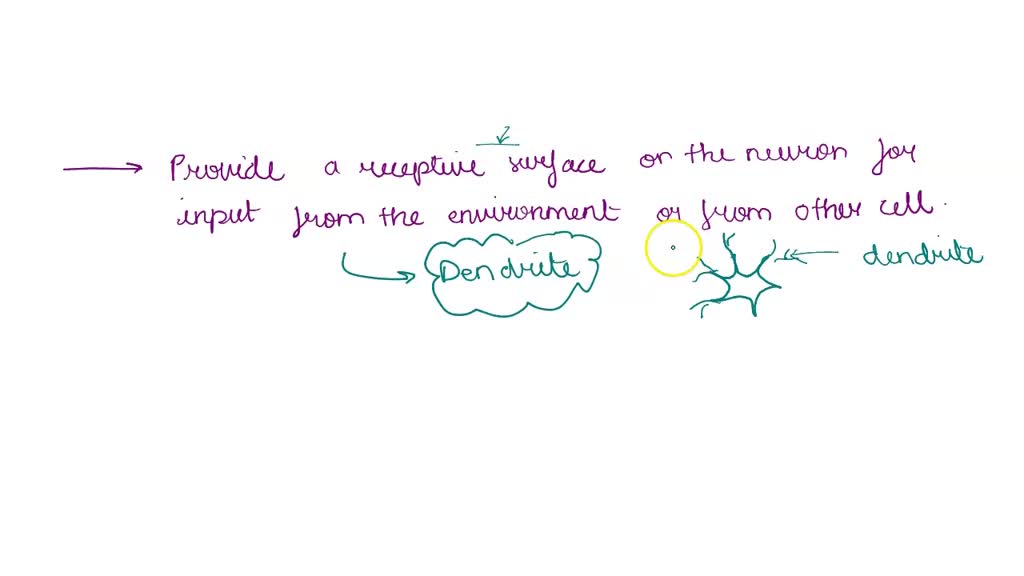 Provide a receptive surface on the neuron for
input from the environment or from other cell.
Dendrite
dendrite